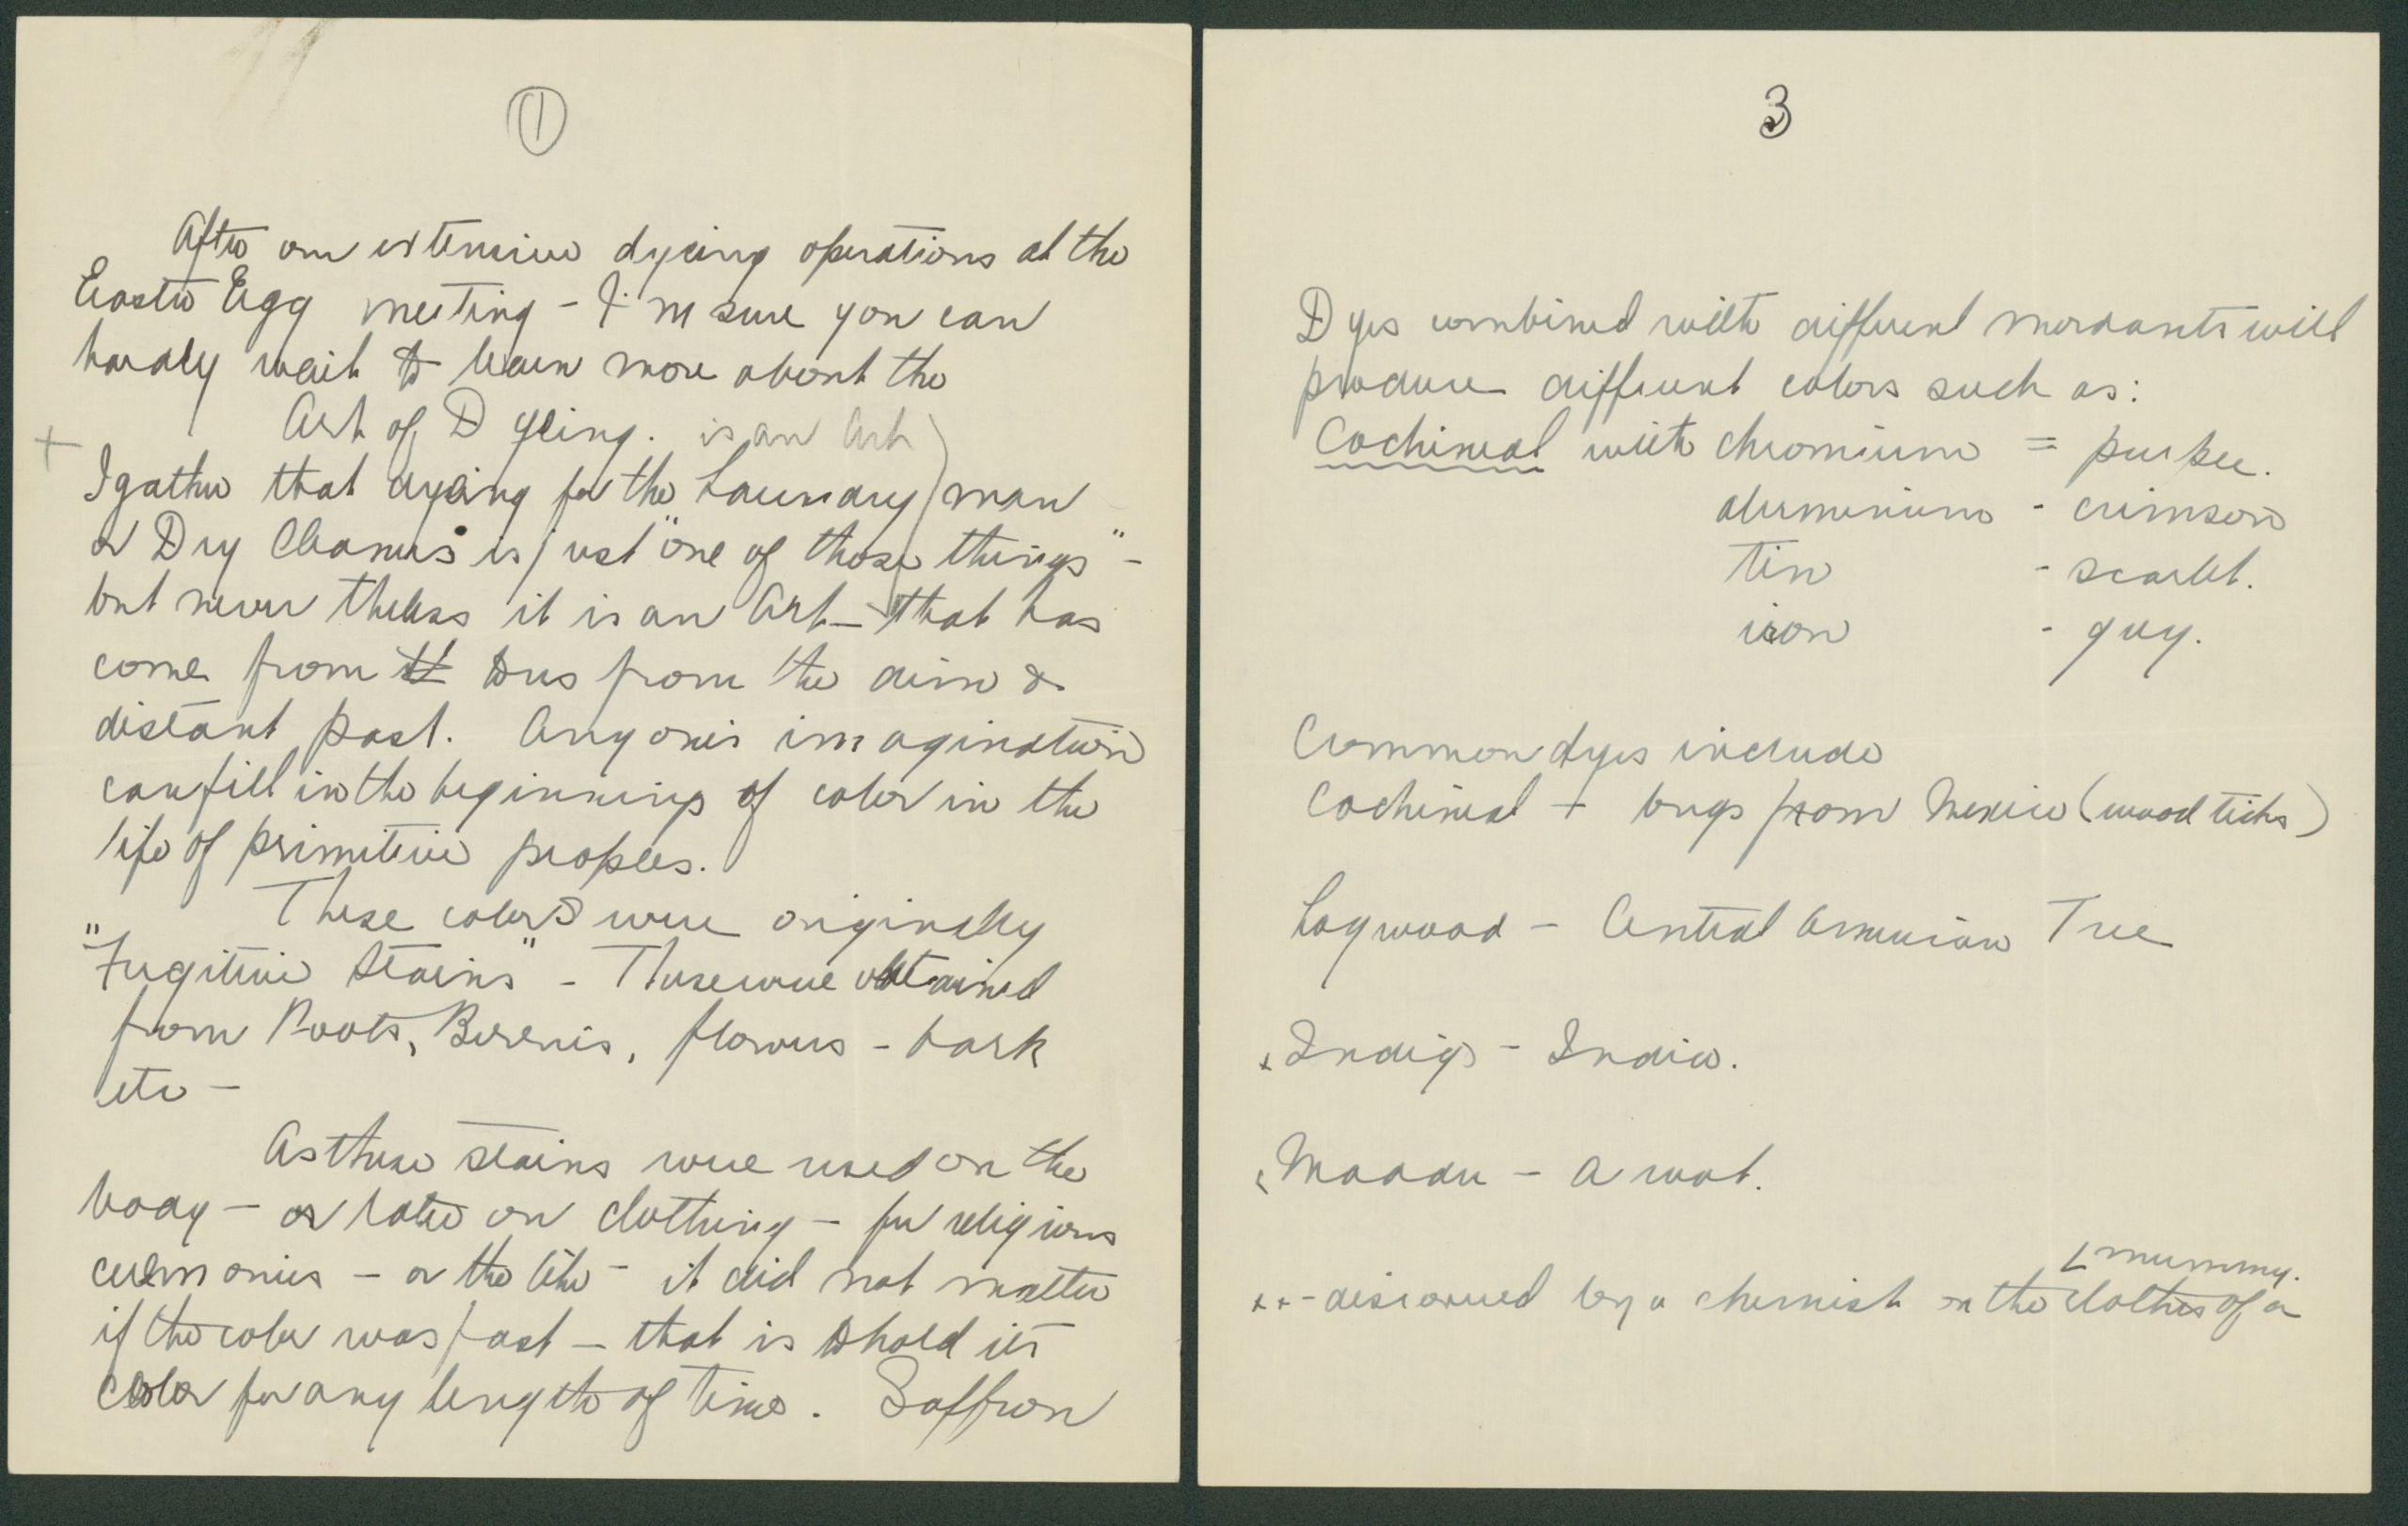 1
After our extensive dyeing operations at the
Easter Egg meeting - I'm sure you can
hardly wait to learn more about the
Art of Dyeing. is an Art
+ I gather that dyeing for the Laundry man
or Dry Cleaners is just "one of those things" -
but never theless it is an Art - that has
come from to us from the dim &
distant past. Any one's imagination
can fill in the beginnings of color in the
life of primitive peoples.
These colors were originally
"Fugitive Stains" - These were obtained
from Roots, Berries, flowers - bark
etc -
As these stains were used on the
body - or later on clothing - for religious
ceremonies - or the like - it did not matter
if the color was fast - that is to hold its
color for any length of time. Saffron
3
Dyes combined with different mordants will
produce different colors such as:
Cochineal with chromium = purple.
aluminium - crimson
tin - scarlet.
iron - grey.
Common dyes include
Cochineal - bugs from Mexico (wood ticks)
Logwood - Central American Tree
x Indigo - India.
x Madder - A root.
mummy.
x x - discovered by a chemist on the clothes of a